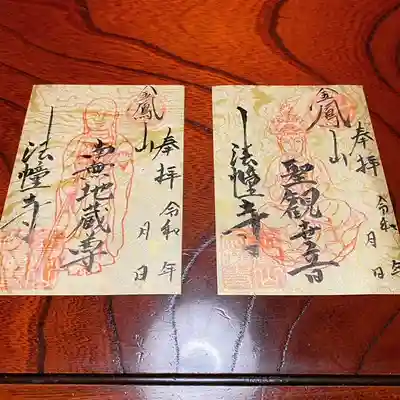 奉拝
令和 年
月 日
金鳳山
地蔵尊
法幢寺
奉拝
令和 年
月 日
金鳳山
聖観世音
法幢寺